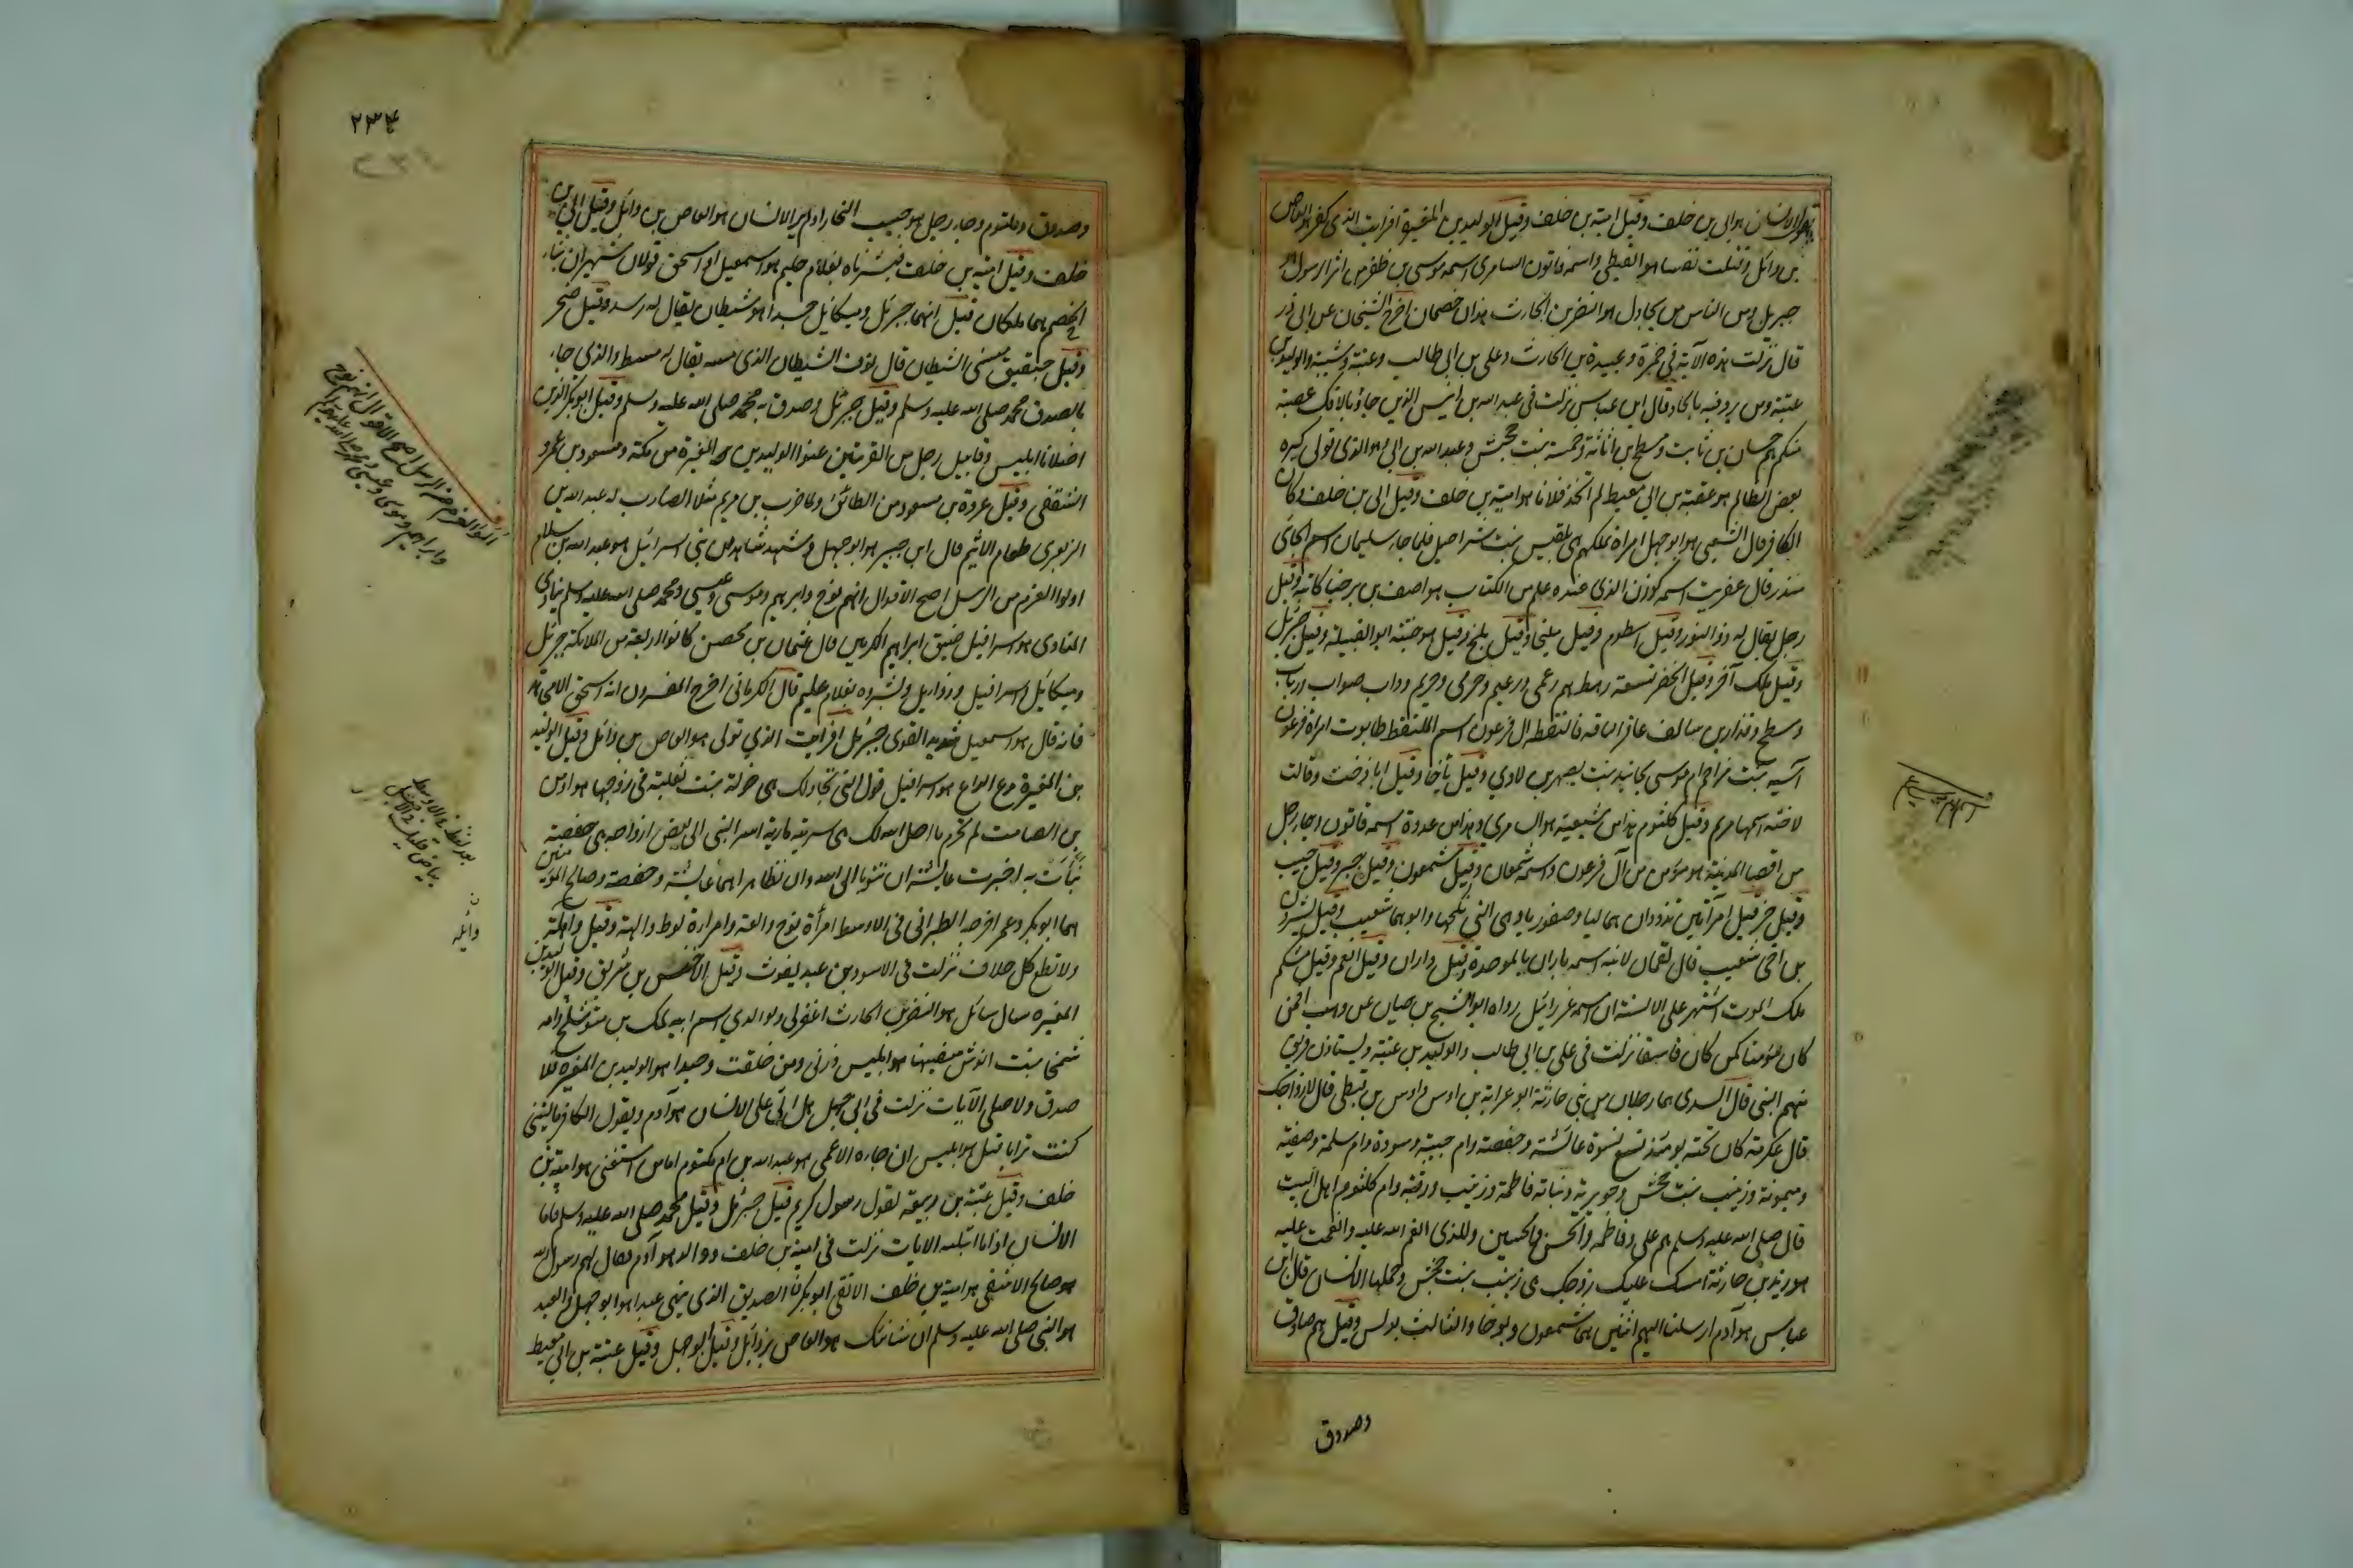 بن وائل وقتلت نفسا هو القبطي واسمه قاتون السامري اسمه موسى بن ظفر من اثر الرسول هو
جبريل ومن الناس من يجادل هو النضر بن الحارث هذان خصمان اخرج الشيخان عن ابي ذر
قال نزلت هذه الآية في حمزة وعبيدة بن الحارث وعلي بن ابي طالب وعتبة وشيبة والوليد بن
عتبة ومن يرد فيه بالحاد قال ابن عباس نزلت في عبد الله بن انيس الذين جاؤا بالافك عصبة
منكم هم حسان بن ثابت ومسطح بن اثاثة وحمنة بنت جحش وعبد الله بن ابي وهو الذي تولى كبره
يعض الظالم هو عقبة بن ابي معيط لم اتخذ فلانا هو امية بن خلف وقيل ابي بن خلف وكان
الكافر قال الشعبي هو ابو جهل امراة تملكهم هي بلقيس بنت شراحيل فلما جاء سليمان اسم الجائي
منذر قال عفريت اسمه كوزن الذي عنده علم من الكتاب هو اصف بن برخيا كاتبه وقيل
رجل يقال له ذو النور وقيل اسطوم وقيل مليخا وقيل بلخ وقيل هو ضبة ابو القبيلة وقيل جبرئيل
وقيل ملك آخر وقيل الخضر تسعة رهط هم رعمى ورعيم وهرمى وهريم وداب وصواب ورياب
ومسطح وقدار بن سالف عاقر الناقة فالتقطه ال فرعون اسم الملتقط طابوث امراة فرعون
آسية بنت مزاحم ام موسى يحانيد بنت يصهر بن لاوي وقيل ياخا وقيل اباذخت وقالت
لاخته اسمها مريم وقيل كلثوم هذا من شيعته هو السامري وهذا من عدوه اسمه قاتون وجاء رجل
من اقصا المدينة هو مؤمن من آل فرعون واسمه شمعان وقيل شمعون وقيل جبر وقيل حبيب
وقيل حزقيل امرأتين تذودان هما ليا وصفوريا وهي التي نكحها وابوهما شعيب وقيل يثرون
بن اخي شعيب قال لقمان لابنه اسمه باران بالموحدة وقيل داران وقيل انعم وقيل مشكم
ملك الموت اشتهر على الالسنة ان اسمه عزرائيل رواه ابو الشيخ بن حيان عن وهب افمن
كان مؤمنا كمن كان فاسقا نزلت في علي بن ابي طالب والوليد بن عتبة ويستاذن فريق
منهم النبي قال السدي هما رجلان من بني حارثة ابو عرابة بن اوس واوس بن قيظي قل لازواجك
قال عكرمة كان تحته يومئذ تسع نسوة عائشة وحفصة وام حبيبة وسودة وام سلمة وصفية
وميمونة وزينب بنت جحش وجويرية وبناته فاطمة وزينب ورقية وام كلثوم اهل البيت
قال صلى الله عليه وسلم هم علي وفاطمة والحسن والحسين وللذي انعم الله عليه وانعمت عليه
هو زيد بن حارثة امسك عليك زوجك هي زينب بنت جحش وحملها الانسان قال ابن
عباس هو آدم ارسلنا اليهم اثنين هما شمعون ويوحنا والثالث بولس وقيل هم صادق
وصدوق
٢٣٤
وصدوق وملثوم وجاء رجل هو حبيب النجار اولم ير الانسان هو العاص بن وائل وقيل ابي بن
خلف وقيل امية بن خلف فبشرناه بغلام حليم هو اسمعيل او اسحق قولان شهيران نباء
الخصم هما ملكان قيل انهما جبرئيل وميكائيل جسدا هو شيطان يقال له اسيد وقيل صخر
وقيل حبقيق مسني الشيطان قال نوف الشيطان الذي مسه يقال له مسعط والذي جاء
بالصدق محمد صلى الله عليه وسلم وقيل جبرئيل وصدق به محمد صلى الله عليه وسلم وقيل ابو بكر الذين
اضلانا ابليس وقابيل رجل من القريتين عنوا الوليد بن المغيرة من مكة ومسعود بن عمرو
الثقفي وقيل عروة بن مسعود من الطائف ولما ضرب بن مريم مثلا الضارب له عبد الله بن
الزبعرى طعام الاثيم قال ابن جبير هو ابو جهل وشهد شاهد من بني اسرائيل هو عبد الله بن سلام
اولوا العزم من الرسل اصح الاقوال انهم نوح وابرهيم وموسى وعيسى ومحمد صلى الله عليه وسلم ينادي
المنادي هو اسرافيل ضيف ابراهيم المكرمين قال عثمان بن محصن كانوا اربعة من الملائكة جبرئيل
وميكائيل واسرافيل ورفاييل وبشروه بغلام عليم قال الكرماني اجمع المفسرون انه اسحق الا مجاهد
فانه قال هو اسمعيل شديد القوى جبرئيل افرايت الذي تولى هو العاص بن وائل وقيل الوليد
بن المغيرة يدع الداع هو اسرافيل قول التي تجادلك هي خولة بنت ثعلبة في زوجها هو اوس
بن الصامت لم تحرم ما احل الله لك هي سرية مارية اسر النبي الى بعض ازواجه هي حفصة
نبأت به اخبرت عائشة ان تتوبا الى الله وان تظاهرا هما عائشة وحفصة وصالح المؤمنين
هما ابو بكر وعمر اخرجه الطبراني في الاوسط امرأة نوح والعة وامراة لوط والهة وقيل واهلة
ولا تطع كل حلاف نزلت في الاسود بن عبد يغوث وقيل الاخنس بن شريق وقيل الوليد بن
المغيرة سال سائل هو النضر بن الحارث اغفر لي ولوالدي اسم ابيه لمك بن متوشلخ وامه
شمخا بنت انوش سفيهنا هو ابليس ذرني ومن خلقت وحيدا هو الوليد بن المغيرة فلا
صدق ولا صلى الآيات نزلت في ابي جهل هل اتى على الانسان هو آدم ويقول الكافر يا ليتني
كنت ترابا قيل هو ابليس ان جاءه الاعمى هو عبد الله بن ام مكتوم اما من استغنى هو امية بن
خلف وقيل عتبة بن ربيعة لقول رسول كريم قيل جبرئيل وقيل محمد صلى الله عليه وسلم فاما
الانسان اذا ما ابتلاه الايات نزلت في امية بن خلف ووالد هو آدم فقال لهم رسول الله
هو صالح الاشقى هو امية بن خلف الاتقى ابو بكر الصديق الذي ينهى عبدا هو ابو جهل والعبد
هو النبي صلى الله عليه وسلم ان شانئك هو العاص بن وائل وقيل ابو جهل وقيل عقبة بن ابي معيط